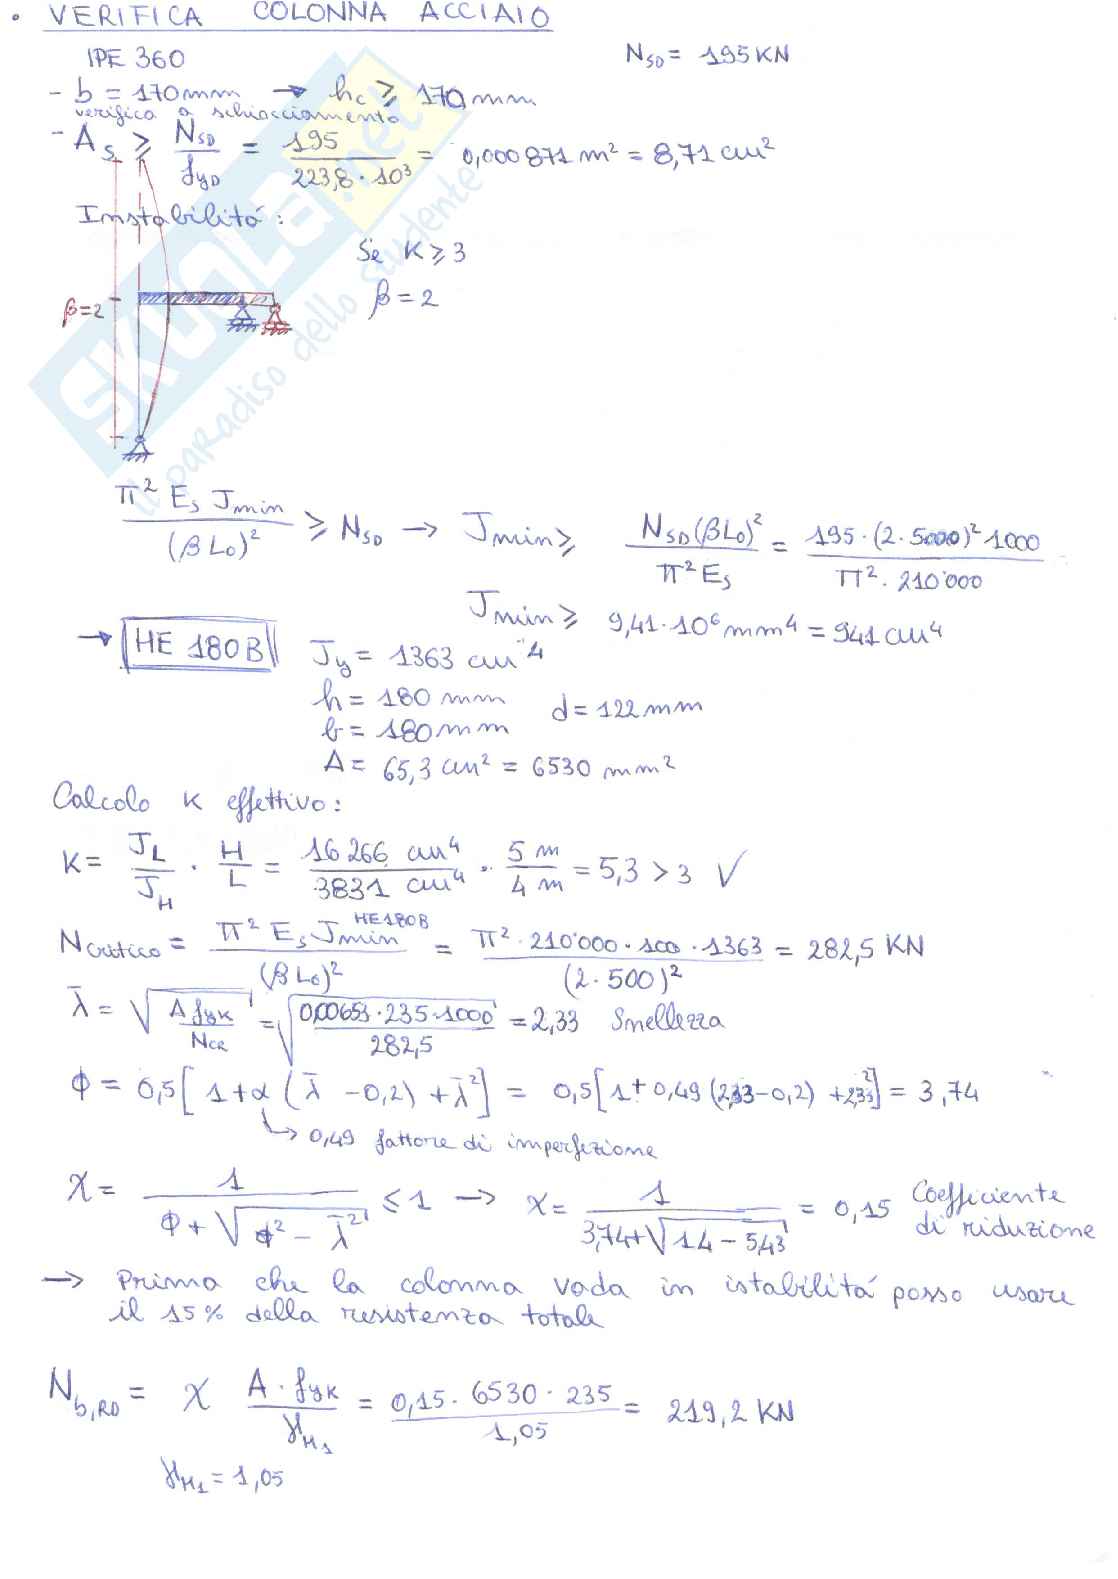 • VERIFICA COLONNA ACCIAIO
IPE 360 N_SD = 195 KN
- b = 170 mm → h_c ⩾ 170 mm
verifica a schiacciamento
- A_s ⩾ N_SD / f_yD = 195 / 223,8 · 10³ = 0,000871 m² = 8,71 cm²
Instabilitá:
Se K ⩾ 3
β = 2
β = 2
π² E_s J_min / (β L_0)² ⩾ N_SD → J_min ⩾ N_SD (β L_0)² / π² E_s = 195 · (2 · 5000)² 1000 / π² · 210'000
J_min ⩾ 9,41 · 10⁶ mm⁴ = 941 cm⁴
→ HE 180B J_y = 1363 cm⁴
h = 180 mm d = 122 mm
b = 180 mm
A = 65,3 cm² = 6530 mm²
Calcolo K effettivo:
K = J_L / J_H · H / L = 16266 cm⁴ / 3831 cm⁴ · 5 m / 4 m = 5,3 > 3 √
N_critico = π² E_s J_min^HE180B / (β L_0)² = π² · 210'000 · 100 · 1363 / (2 · 500)² = 282,5 KN
λ̄ = √(A f_yK / N_CR) = √(0,00653 · 235 · 1000 / 282,5) = 2,33 Snellezza
ϕ = 0,5 [1 + α (λ̄ - 0,2) + λ̄²] = 0,5 [1 + 0,49 (2,33 - 0,2) + 2,33²] = 3,74
↳ 0,49 fattore di imperfezione
χ = 1 / ϕ + √(ϕ² - λ̄²) ⩽ 1 → χ = 1 / 3,74 + √(14 - 5,43) = 0,15 Coefficiente di riduzione
→ Prima che la colonna vada in istabilitá posso usare
il 15% della resistenza totale
N_b,RD = χ A · f_yK / γ_M1 = 0,15 · 6530 · 235 / 1,05 = 219,2 KN
γ_M1 = 1,05
SKUOLA.net
il paradiso dello studente